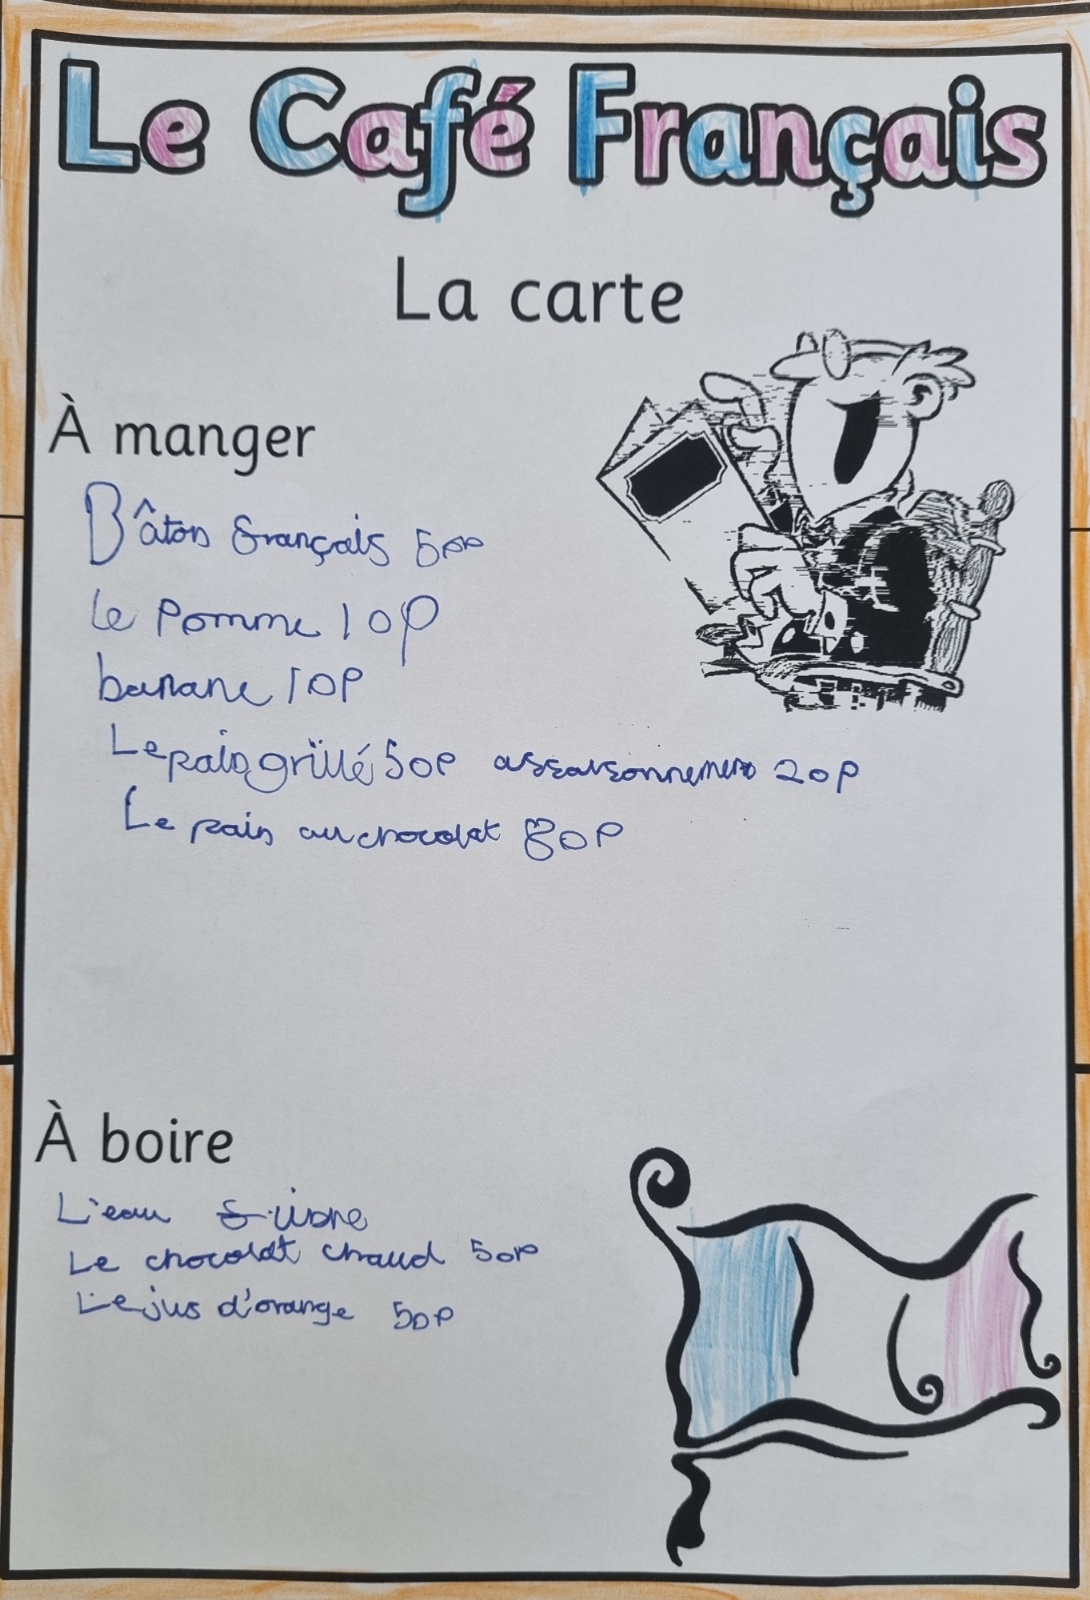 Le Café Français
La carte
À manger
Bâton français 50p
le Pomme 10p
banane 10P
Le pain grillé 50P assaisonnement 20p
Le pain au chocolat 80P
À boire
L'eau libre
Le chocolat chaud 50P
Le jus d'orange 50P